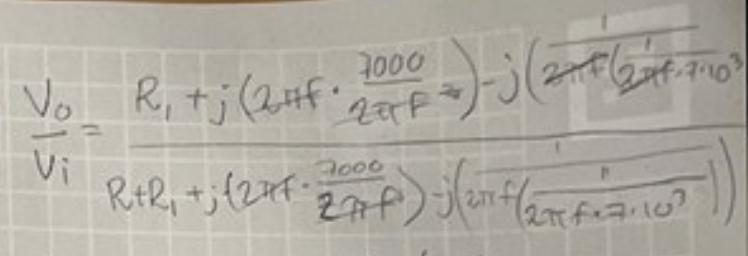 V₀/Vᵢ = (R₁ + j(2πf · 7000/2πf) - j(1/(2πf(1/(2πf·7·10³)
R+R₁ + j(2πf · 7000/2πf) - j(1/(2πf(1/(2πf·7·10³))))